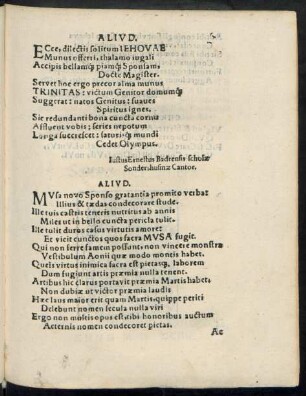 ALIVD.
ECce, dilectis solitum IEHOVAE
Munus offerri, thalamo iugali
Accipis bellamq́; piamq́; Sponsam,
Docte Magister.
Servet hoc ergo precor alma munus
TRINITAS: victum Genitor domumq́;
Suggerat: natos Genitus: suaues
Spiritus ignes.
Sic redundanti bona cuncta cornu
Affluent vobis; series nepotum
Longa succrescet: saturiq́; mundi
Cedet Olympus.
Iustus Ernestus scholæ
Sondershusinæ Cantor.
ALIVD.
MVsa novo Sponso gratantia promito verba:
Illius & tædas condecorare stude.
Ille tuis castris teneris nutritus ab annis
Miles ut in bello cuncta pericla tulit.
Ille tulit duros casus virtutis amore:
Et vicit cunctos quos sacra MVSA fugit.
Qui non ferre famem possunt, non vincere monstra
Vestibulum Aonii quæ modo montis habet.
Queis virtus inimica sacra est pietasq́, laborem
Dum fugiunt artis præmia nulla tenent.
Artibus hic clarus portavit præmia Martis habet,
Non dubiæ ut victor præmia laudis
Hæc laus maior erit quam Martis, quippe periti
Delebunt nomen secula nulla viri
Ergo non multis opus est tibi honoribus auctum
Aeternis nomen condecoret pietas.
Ac